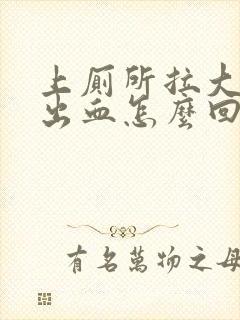 上厕所拉大
出血怎麼回
有名萬物之母